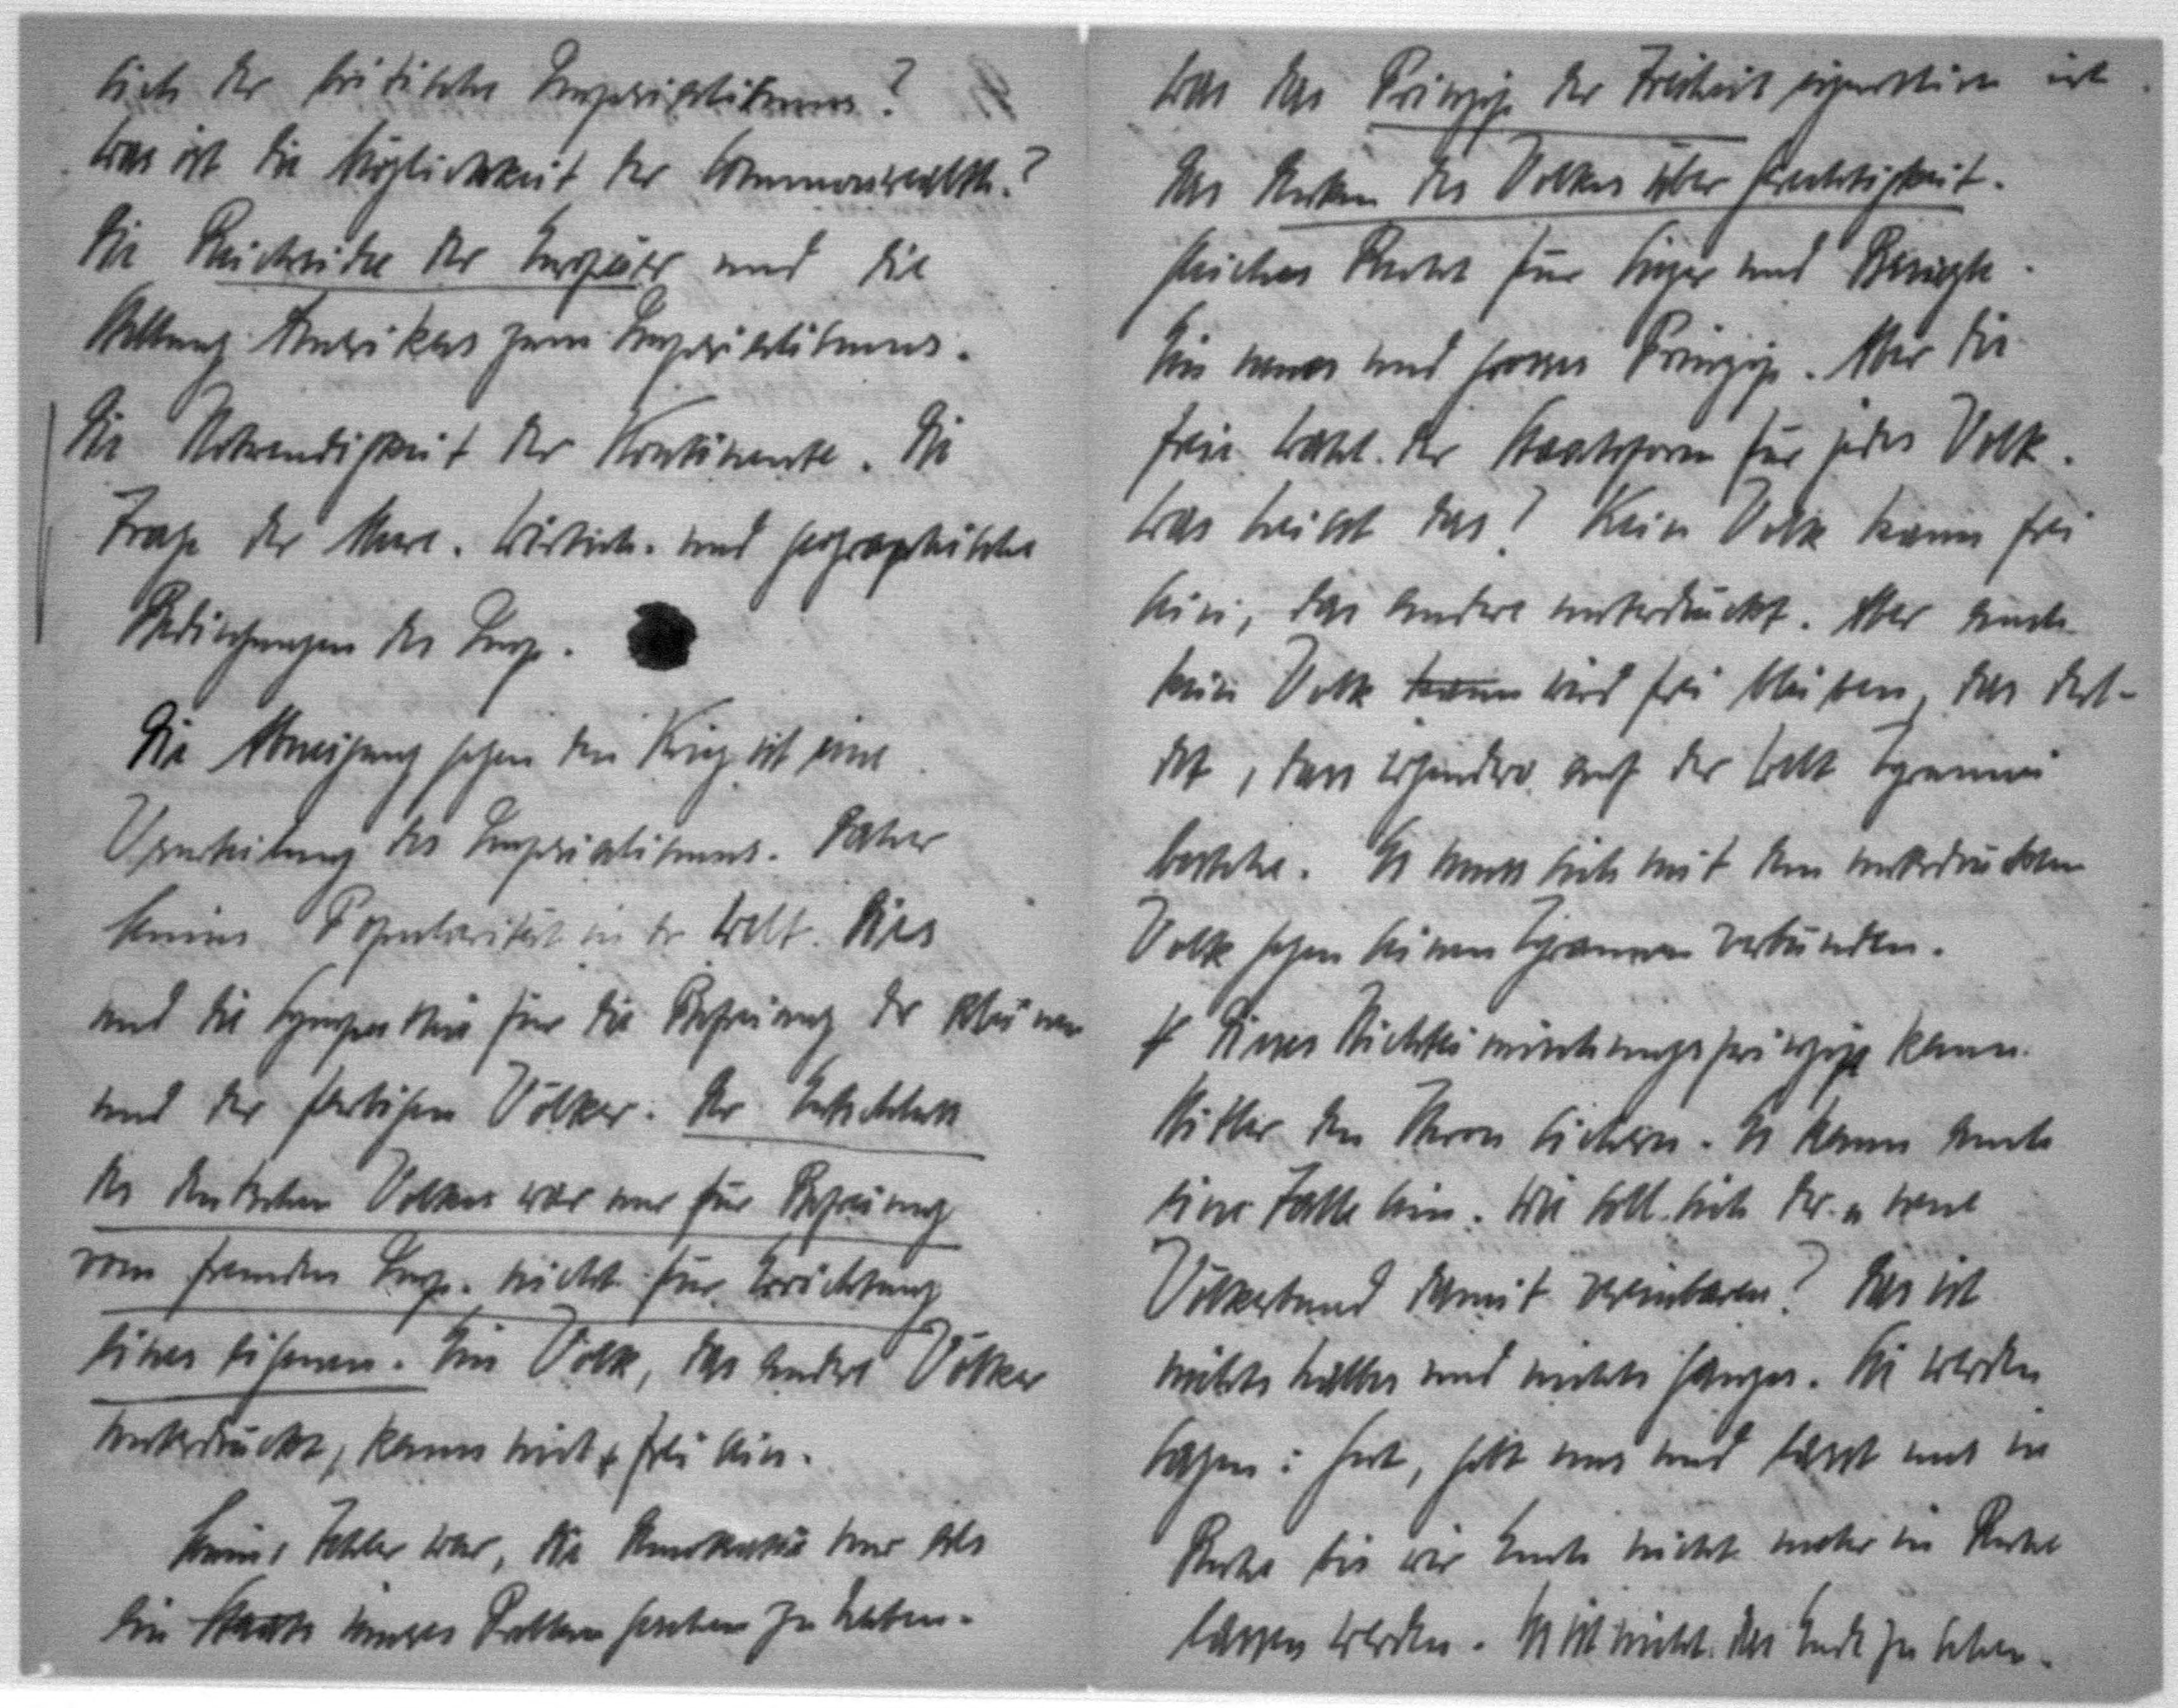 sich der britische Imperialismus?
Was ist die Möglichkeit der Commonwealth?
Die Reichsidee der Europäer und die
Stellung Amerikas zum Imperialismus.
Die Notwendigkeit der Kontinente. Die
Frage der Meere. Wirtsch. und geographische
Bedingungen des Imp.
Die Abneigung gegen den Krieg ist eine
Verurteilung des Imperialismus. Daher
seine Popularität in der Welt. Dies
und die Sympathie für die Befreiung der kleinen
und der farbigen Völker. Der Entschluss
des deutschen Volkes war nur für Befreiung
vom fremden Imp. nicht für Errichtung
eines eigenen. Ein Volk, das andere Völker
unterdrückt, kann nicht frei sein.
Fehler war, die Demokratie nur als
ein Staats inneres Problem gesehen zu haben.
Was das Prinzip der Freiheit ist.
Das Denken des Volkes über Gerechtigkeit.
Gleiches Recht für Sieger und Besiegte.
Ein neues und grosses Prinzip. Aber die
freie Wahl der Staatsform für jedes Volk.
Was heisst das? Kein Volk kann frei
sein, das andere unterdrückt. Aber auch
kein Volk kann wird frei bleiben, das dul-
det, dass irgendwo auf der Welt Tyrannei
bestehe. Es muss sich mit dem unterdrückten
Volk gegen seinen Tyrannen verbünden.
Dieses Nichteinmischungsprinzip kann
Hitler den Thron sichern. Es kann auch
eine Falle sein. Wie soll sich der neue
Völkerbund damit vereinbaren? Das ist
nichts halbes und nichts ganzes. Sie werden
sagen: Gut, gebt uns und lasst uns in
Ruhe bis wir Euch nicht mehr in Ruhe
lassen werden. Es ist nicht das Ende zu sehen.